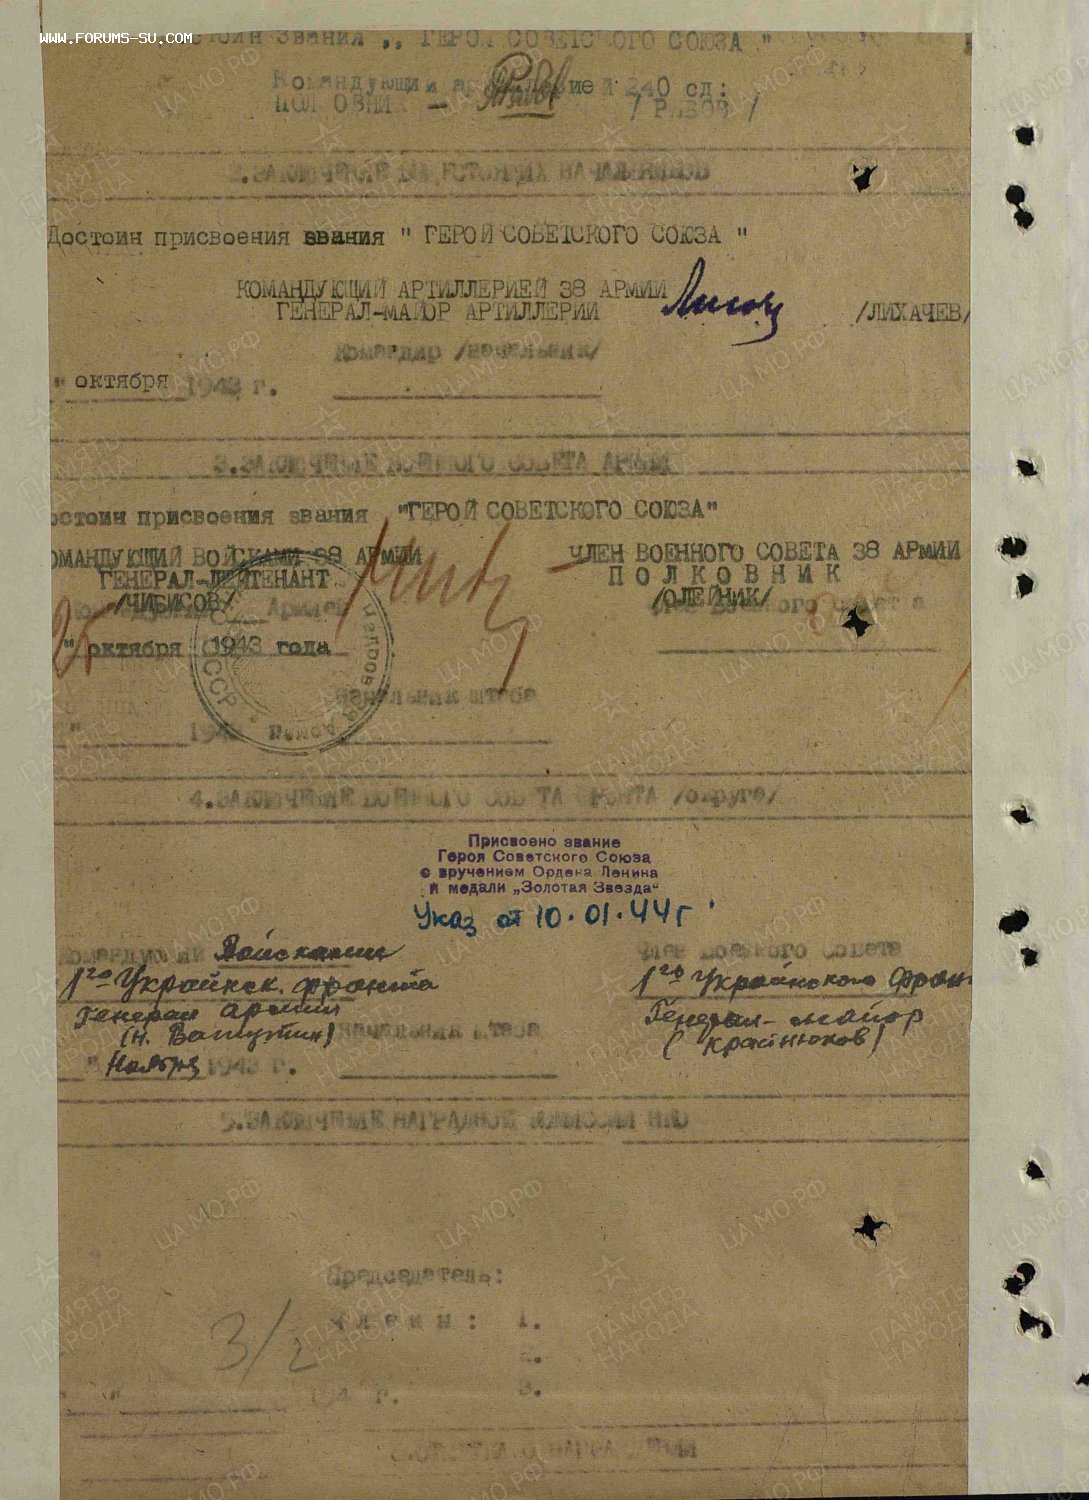 www.forums-su.com
стоин звания ,, ГЕРОЯ СОВЕТСКОГО СОЮЗА "
Командующий артиллерией 240 сд:
/ РЯБОВ /
2.ЗАКЛЮЧЕНИЕ ВЫШЕСТОЯЩИХ НАЧАЛЬНИКОВ
Достоин присвоения звания " ГЕРОЙ СОВЕТСКОГО СОЮЗА "
КОМАНДУЮЩИЙ АРТИЛЛЕРИЕЙ 38 АРМИИ
ГЕНЕРАЛ-МАЙОР АРТИЛЛЕРИИ /ЛИХАЧЕВ/
Командир /начальник/
" октября 1943 г.
3.ЗАКЛЮЧЕНИЕ ВОЕННОГО СОВЕТА АРМИИ
остоин присвоения звания "ГЕРОЙ СОВЕТСКОГО СОЮЗА"
ОМАНДУЮЩИЙ ВОЙСКАМИ 38 АРМИИ ЧЛЕН ВОЕННОГО СОВЕТА 38 АРМИИ
ГЕНЕРАЛ-ЛЕЙТЕНАНТ П О Л К О В Н И К
/ЧИБИСОВ/ Армией /ОЛЕЙНИК/
25 " октября 1943 года
СССР
Начальник штаба
4.ЗАКЛЮЧЕНИЕ ВОЕННОГО СОВЕТА ФРОНТА /округа/
Присвоено звание
Героя Советского Союза
с вручением Ордена Ленина
и медали „Золотая Звезда"
Указ от 10.01.44г
Командующий Войсками Член Военного Совета
1го Украинск. фронта 1го Украинского Фрон
Генерал армии Генерал-майор
(Н. Ватутин) Начальник штаба (Крайнюков)
" Ноября 1943 г.
5.ЗАКЛЮЧЕНИЕ НАГРАДНОЙ КОМИССИИ НКО
Председатель:
Ч л е н ы : 1.
3/2 2.
" " 194 г. 3.
ПАМЯТЬ НАРОДА
ЦА МО.РФ